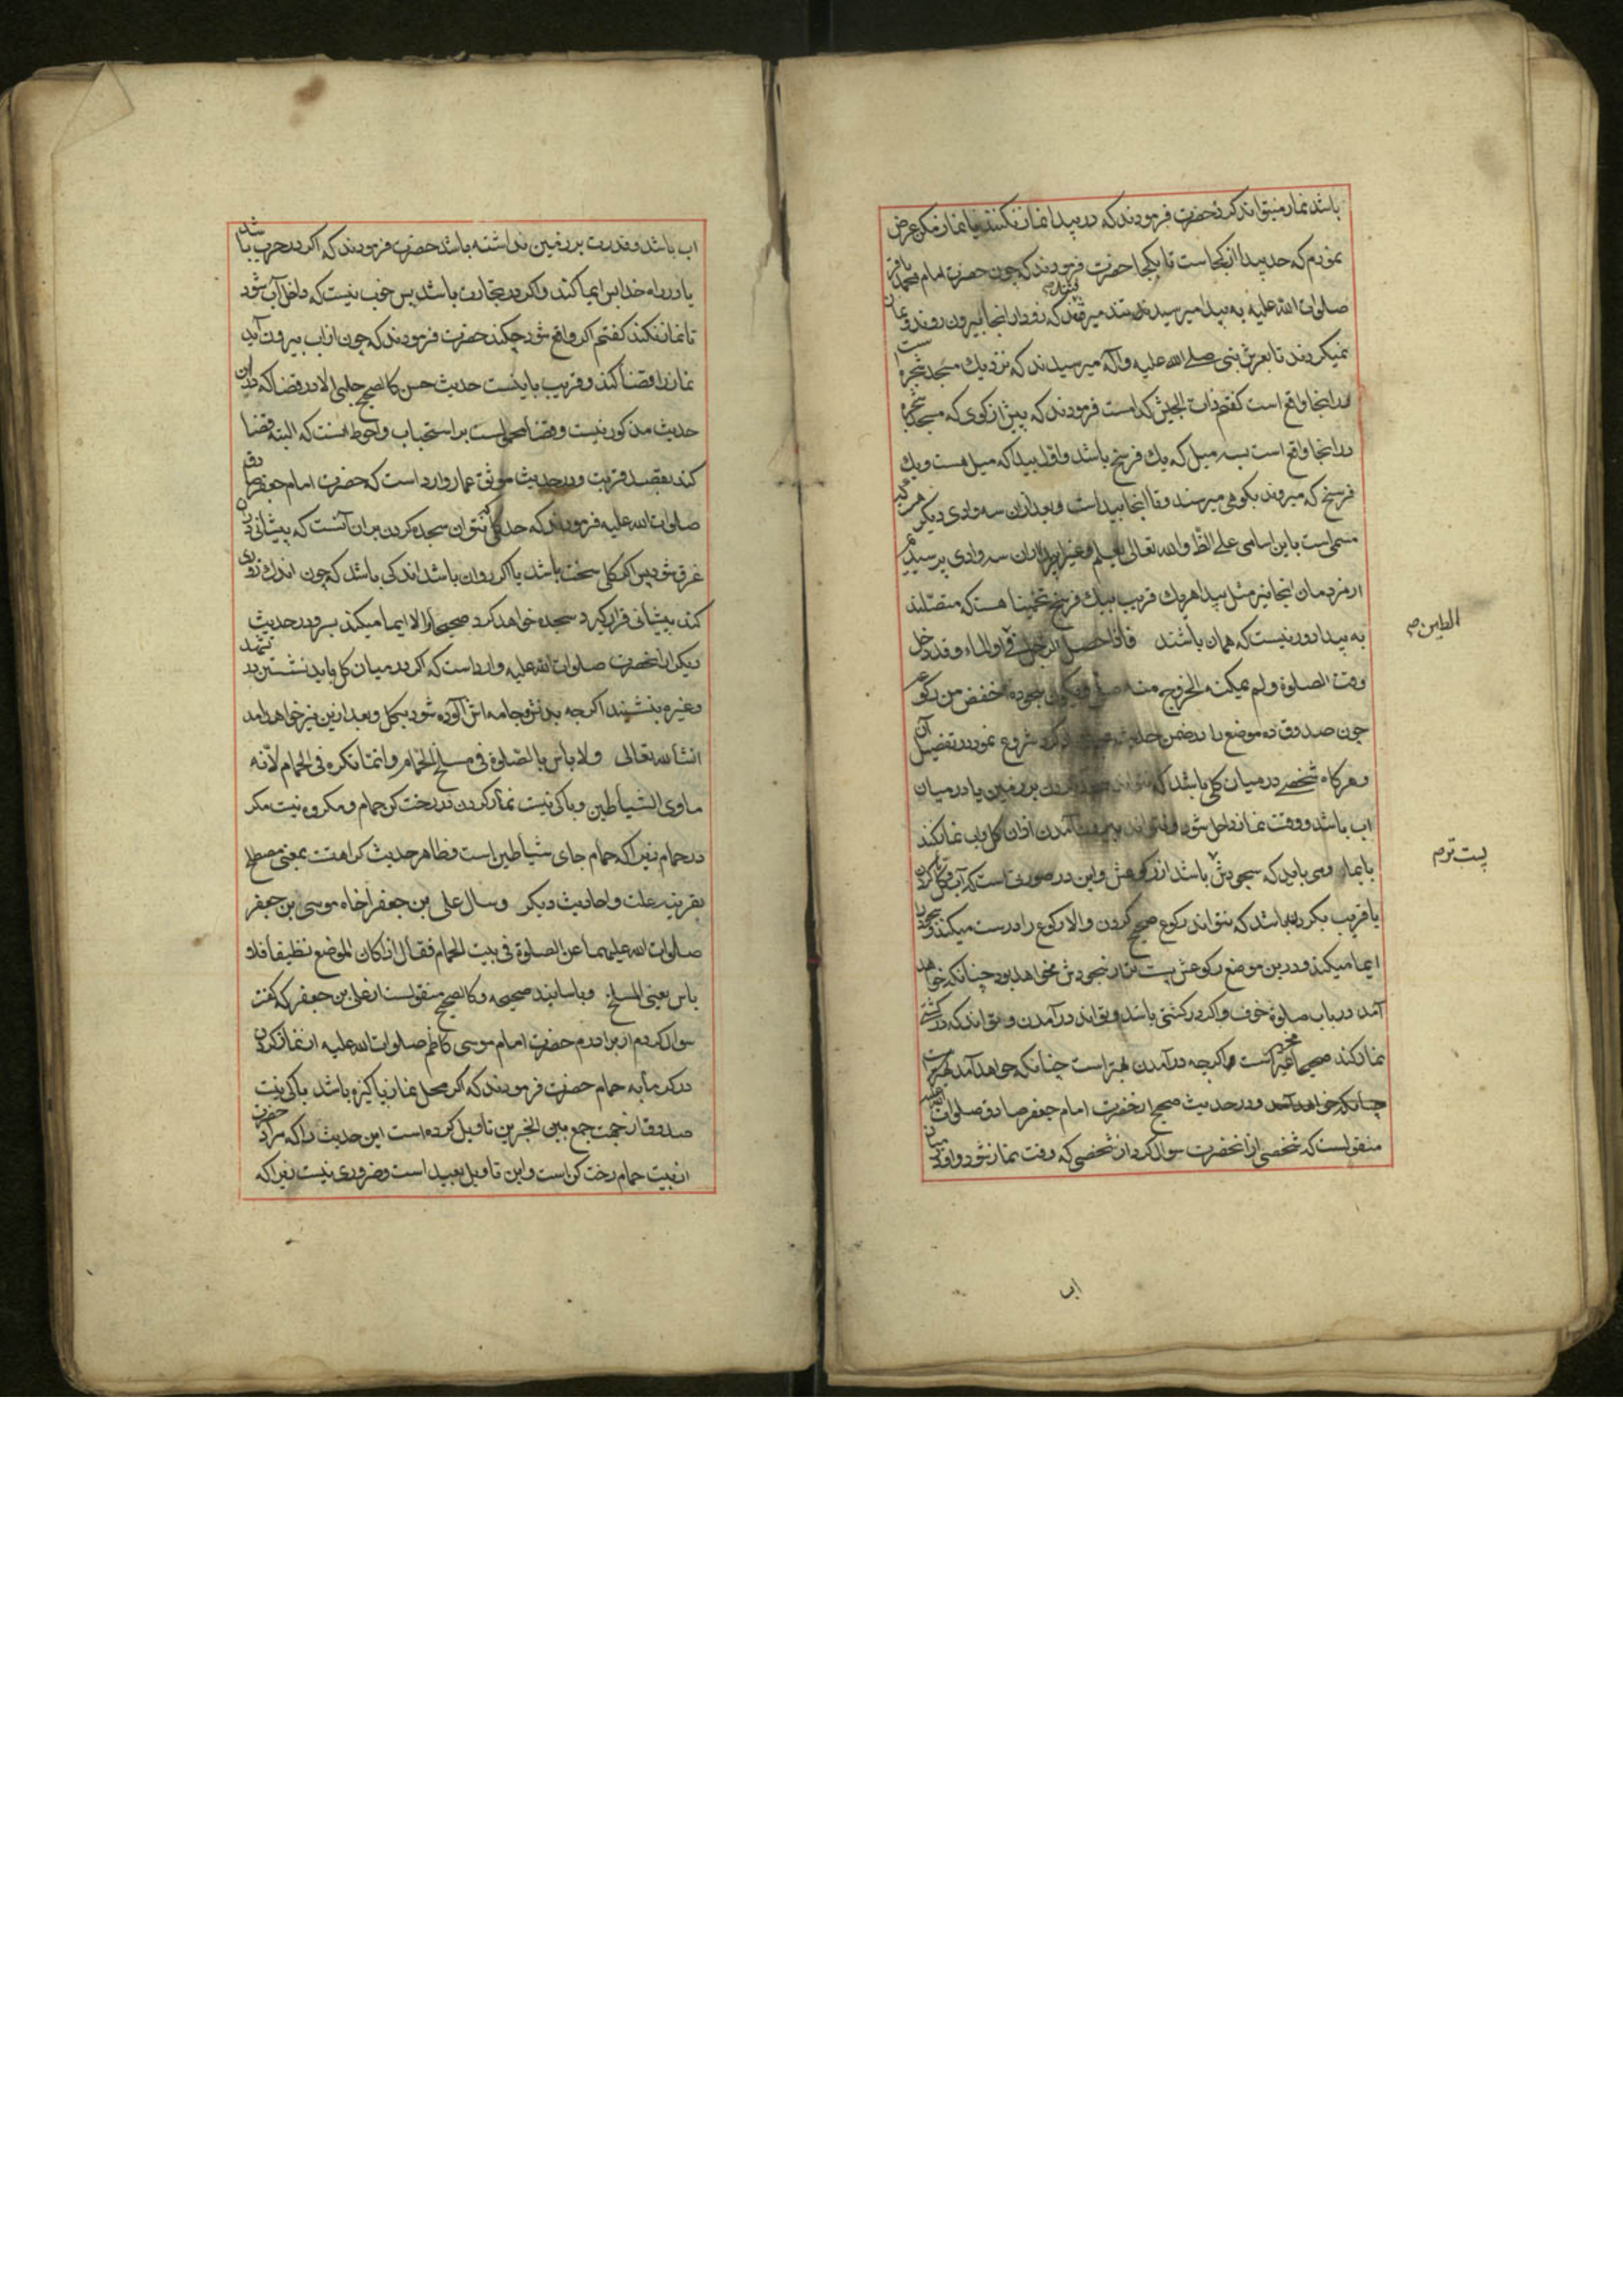 باشد نماز میتواند کرد حضرت فرمودند که در بیدا نماز نکنند یا نماز مکن عرض
نمودم که حد بیدا از کجاست تا بکجا حضرت فرمودند که چون حضرت امام محمد باقر
صلوات الله علیه به بیدا میرسیدند تند میرفتند که زود از انجا بیرون روند و نماز
نمیکردند تا بعرش نبی صلی الله علیه و آله میرسیدند که نزدیك مسجد شجره است
در انجا واقع است کفتم ذات الجیش کدامست فرمودند که پیش از کوی که مسجد شجره
در انجا واقع است بسه میل که یك فرسخ باشد و اول بیدا که میل هست و یك
فرسخ که میروند بکوهی میرسند و تا انجا بیداست و بعد از ان سه وادی دیکر هر یك
مسمی است باین اسامی علی الظ و الله تعالی یعلم و غیر بیدا از ان سه وادی پرسیدیم
از مردمان انجا نیز مثل بیدا هر یك قریب بیك فرسخ تخمینا هست که متصلند
به بیدا دور نیست که همان باشند فاذا حصل الرجل فی او الماء و قد دخل
الطین صح
وقت الصلوة و لم یمکنه الخروج منه صلی و یکون سجوده اخفض من رکوعه
چون صدوق ده موضع را در ضمن حدیث شروع نمود در تفصیل آن
و هر کاه شخصی در میان کلی باشد که نتواند بر زمین یا در میان
اب باشد و وقت نماز داخل شود و نتواند بیرون آمدن از ان کل و اب نماز کند
بایماء و می باید که سجودش باشد از رکوعش و این در صورتی است که آب و کل تا کردن
پست تر صح
یا قریب بکردن باشد که نتواند رکوع صحیح کردن و الا رکوع را درست میکند و سجود را
ایما میکند و در ین موضع رکوعش پست تر از سجودش نخواهد بود چنانکه خواهد
آمد در باب صلوة خوف و اکر در کشتی باشد و تواند در آمدن و تواند که در کشتی
نماز کند صحیحا مخیر است و اکرچه در آمدن بهتر است چنانکه خواهد آمد بهتر است
چنانکه خواهد آمد و در حدیث صحیح از حضرت امام جعفر صادق صلوات الله علیه
منقولست که شخصی از انحضرت سوال کرد از شخصی که وقت نماز شود و او در میان
اب
اب باشد و قدرت بر زمین نداشته باشد حضرت فرمودند که اکر در حرب باشد
یا در راه خدا پس ایما کند و اکر در تجارت باشد پس خوب نیست که داخل آب شود
تا نماز نکند کفتم اکر واقع شود چکند حضرت فرمودند که چون از اب بیرون آید
نماز را قضا کند و قریب باینست حدیث حسن کالصحیح حلبی الا در قضا که در ان
حدیث مذکور نیست و قضا محمولست بر استحباب و احوط انست که البته قضا
کند بقصد قربت و در حدیث موثق عمار وارد است که حضرت امام جعفر صادق
صلوات الله علیه فرمودند که حد کلی که نتوان سجده کردن بر ان آنست که پیشانی در ان
غرق شود پس اکر کلی سخت باشد یا اکر روان باشد اندکی باشد که چون اندك زوری
کند پیشانی قرار کیرد سجده خواهد کرد صحیحا و الا ایما میکند بسر و در حدیث
دیکر از انحضرت صلوات الله علیه وارد است که اکر در میان کل باید نشستن در تشهد
و غیره بنشیند اکر چه بدنش و جامه اش آلوده شود بکل و بعد ازین نیز خواهد امد
انشا الله تعالی و لا باس بالصلوة فی مسلخ الحمام و انما تکره فی الحمام لانه
ماوی الشیاطین و باکی نیست نماز کردن در رخت کن حمام و مکروه نیست مکر
در حمام زیرا که حمام جای شیاطین است و ظاهر حدیث کراهتست بمعنی مصطلح
بقرینه علت و احادیث دیکر و سال علی بن جعفر اخاه موسی بن جعفر
صلوات الله علیهما عن الصلوة فی بیت الحمام فقال اذا کان الموضع نظیفا فلا
باس یعنی المسلخ و باسانید صحیحه و کالصحیح منقولست از علی بن جعفر که کفت
سوال کردم از برادرم حضرت امام موسی کاظم صلوات الله علیه از نماز کردن
در کرمابه حمام حضرت فرمودند که اکر محل نماز پاکیزه باشد باکی نیست
صدوق از جهت جمع بین الخبرین تاویل کرده است این حدیث را که مراد حضرت
از بیت حمام رخت کن است و این تاویل بعید است و ضروری نیست زیرا که